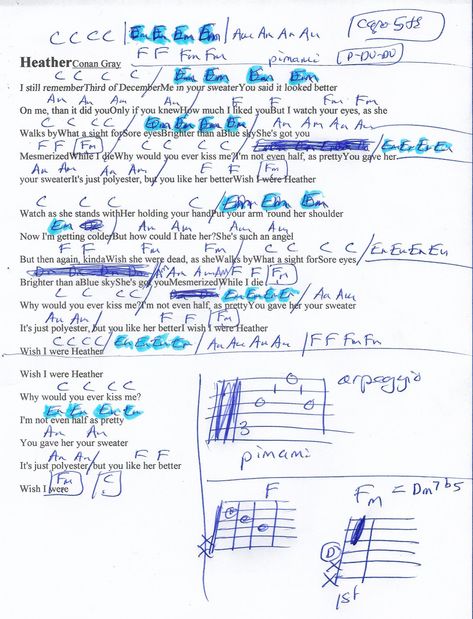 C C C C / Em Em Em Em / Am Am Am Am
Capo 5th
F F Fm Fm
pimami
P-DU-DU
HeatherConan Gray
C C C C / Em Em Em Em
I still rememberThird of DecemberMe in your sweaterYou said it looked better
Am Am Am Am F F Fm
On me, than it did youOnly if you knewHow much I liked youBut I watch your eyes, as she
C C C C / Em Em Em Em / Am Am Am Am
Walks byWhat a sight forSore eyesBrighter than aBlue skyShe's got you
F F / Fm / C C C C / Em Em Em Em
MesmerizedWhile I dieWhy would you ever kiss me?I'm not even half, as prettyYou gave her
Am Am Am Am / F F Fm
your sweaterIt's just polyester, but you like her betterWish I were Heather
C C C C / Em Em Em Em
Watch as she stands withHer holding your handPut your arm 'round her shoulder
Em Am Am Am
Now I'm getting colderBut how could I hate her?She's such an angel
F F Fm Fm C C C C / Em Em Em Em
But then again, kindaWish she were dead, as sheWalks byWhat a sight forSore eyes,
Am Am Am Am / F F / Fm
Brighter than aBlue skyShe's got youMesmerizedWhile I die
C C C C / Em Em Em Em / Am Am
Why would you ever kiss me?I'm not even half, as prettyYou gave your sweater
Am Am / F F Fm
It's just polyester, but you like her betterI wish I were Heather
C C C C / Em Em Em Em / Am Am Am Am / F F Fm Fm
Wish I were Heather
Wish I were Heather
C C C C
Why would you ever kiss me?
Em Em Em Em
I'm not even half as pretty
Am Am
You gave her your sweater
Am Am / F F
It's just polyester, but you like her better
Fm / C
Wish I were
arpeggio
3
pimami
F
Fm = Dm7b5
X
X
D
X
X
1st